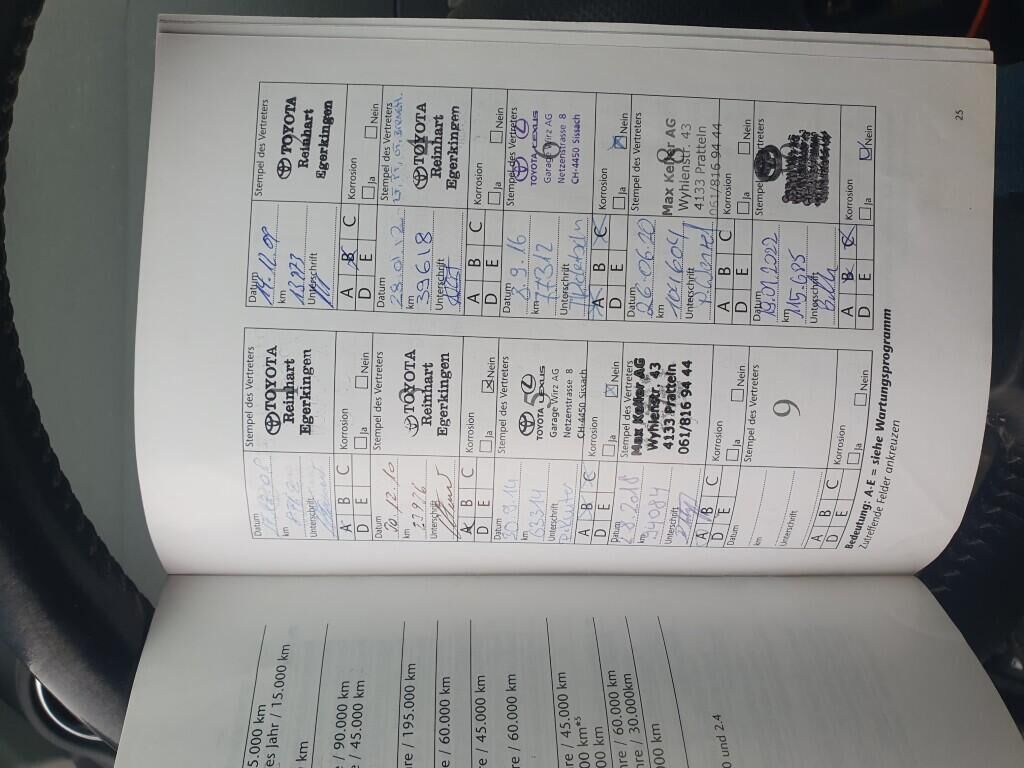 Datum
Stempel des Vertreters
TOYOTA
km
Reinhart
Unterschrift
Egerkingen
A B C
Korrosion
D E
Ja Nein
Datum
Stempel des Vertreters
14.12.09
TOYOTA
km
Reinhart
13'873
Egerkingen
Unterschrift
A B C
Korrosion
D E
Ja Nein
Datum
Stempel des Vertreters
20.12.10
TOYOTA
km
Reinhart
Egerkingen
Unterschrift
A B C
Korrosion
D E
Ja Nein
Datum
Stempel des Vertreters
23.01.12
TOYOTA
km
Reinhart
39618
Egerkingen
Unterschrift
A B C
Korrosion
D E
Ja Nein
Datum
Stempel des Vertreters
30.9.14
TOYOTA LEXUS
km
Garage Wirz AG
63314
Netzenstrasse 8
Unterschrift
CH-4450 Sissach
A B C
Korrosion
D E
Ja Nein
Stempel des Vertreters
8.9.16
TOYOTA LEXUS
km
Garage Wirz AG
77312
Netzenstrasse 8
Unterschrift
CH-4450 Sissach
A B C
Korrosion
D E
Ja Nein
Datum
Stempel des Vertreters
8.2018
Max Keller AG
km
Wyhlenstr. 43
94084
4133 Pratteln
Unterschrift
061/816 94 44
A B C
Korrosion
D E
Ja Nein
Datum
Stempel des Vertreters
26.06.20
Max Keller AG
km
Wyhlenstr. 43
101'604
4133 Pratteln
Unterschrift
061/816 94 44
A B C
Korrosion
D E
Ja Nein
Datum
Stempel des Vertreters
km
9
Unterschrift
A B C
Korrosion
D E
Ja Nein
Datum
19.01.2022
km
115.685
Unterschrift
A B C
Korrosion
D E
Ja Nein
Bedeutung: A-E = siehe Wartungsprogramm
Zutreffende Felder ankreuzen
25
5.000 km
es Jahr / 15.000 km
km
/ 90.000 km
/ 45.000 km
/ 195.000 km
/ 60.000 km
/ 45.000 km
/ 60.000 km
/ 45.000 km
000 km*5
00 km
/ 60.000 km
/ 30.000km
000 km
und 2.4